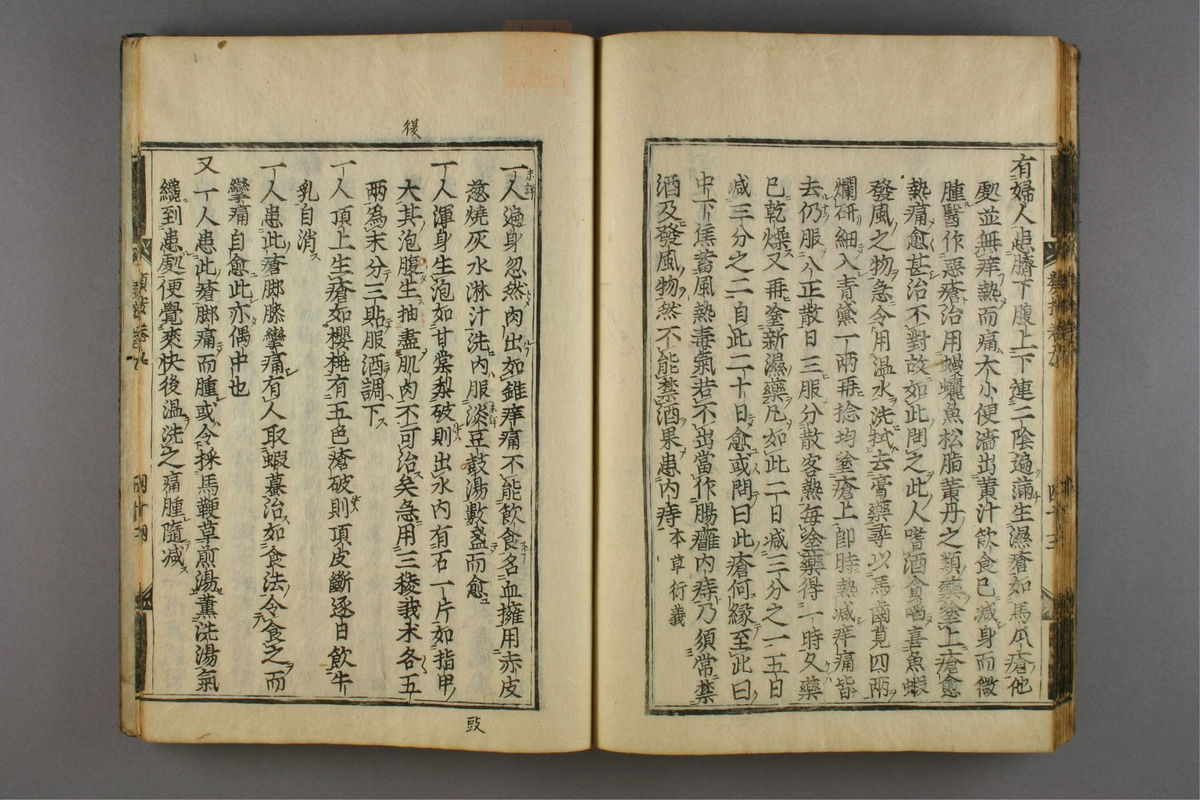 有婦人患臍下腹上下連二陰遍滿生濕瘡如馬瓜瘡他
處並無痒熱而痛大小便濇出黃汁飲食已減身而微
腫醫作惡瘡治用鰻鱺魚松脂黃丹之類藥塗上瘡愈
熱痛愈甚治不對故如此問之此人嗜酒貪啗喜魚蝦
發風之物急令用温水洗拭去膏藥尋以馬齒莧四兩
爛研細入青黛一兩再捻均塗瘡上即時熱減痒痛皆
去仍服八正散日三服分散客熱每塗藥得一時久藥
已乾燥又再塗新濕藥凡如此二日減三分之一五日
減三分之二自此二十日愈或問曰此瘡何緣至此曰
中下焦蓄風熱毒氣若不出當作腸癰內痔乃須常禁
酒及發風物然不能禁酒果患內痔 本草衍義
一人遍身忽然肉出如錐痒痛不能飲食名血擁用赤皮
葱燒灰水淋汁洗內服淡豆豉湯數盞而愈
一人渾身生泡如甘棠梨破則出水內有石一片如指甲
大其泡腹生抽盡肌肉不可治矣急用三稜莪朮各五
兩為末分三貼服酒調下
一人頂上生瘡如櫻桃有五色瘡破則頂皮斷逐日飲牛
乳自消
一人患此瘡脚膝攣痛有人取蝦蟇治如食法令食之而
攣痛自愈此亦偶中也
又一人患此瘡脚痛而腫或令採馬鞭草煎湯薰洗湯氣
纔到患處便覺爽快後温洗之痛腫隨減
復
豉